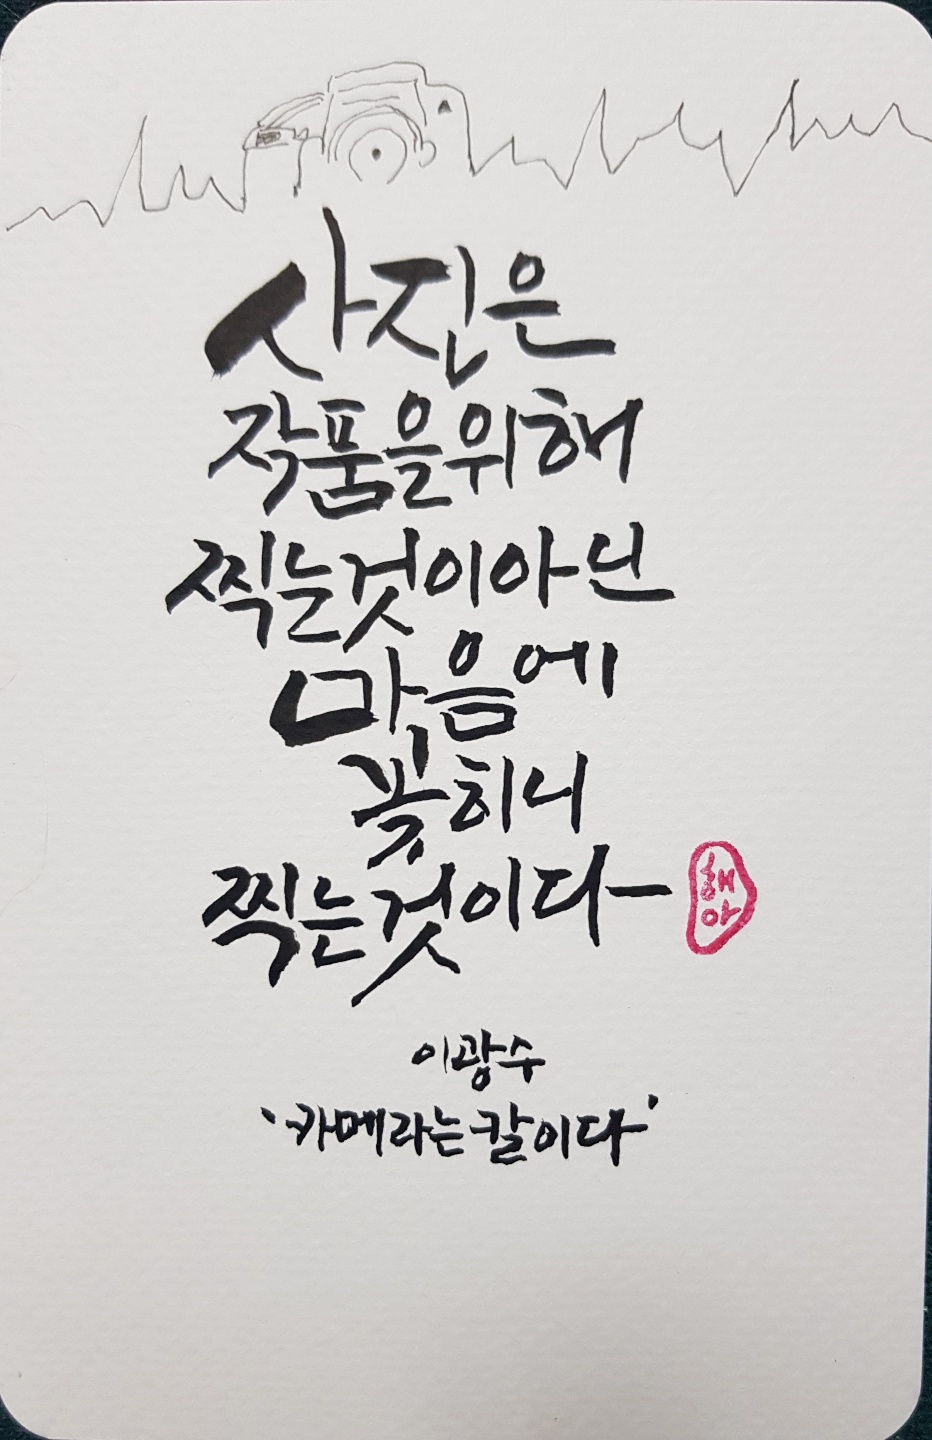 사진은
작품을위해
찍는것이아닌
마음에
꽂히니
찍는것이다
해
아
이광수
'카메라는칼이다'